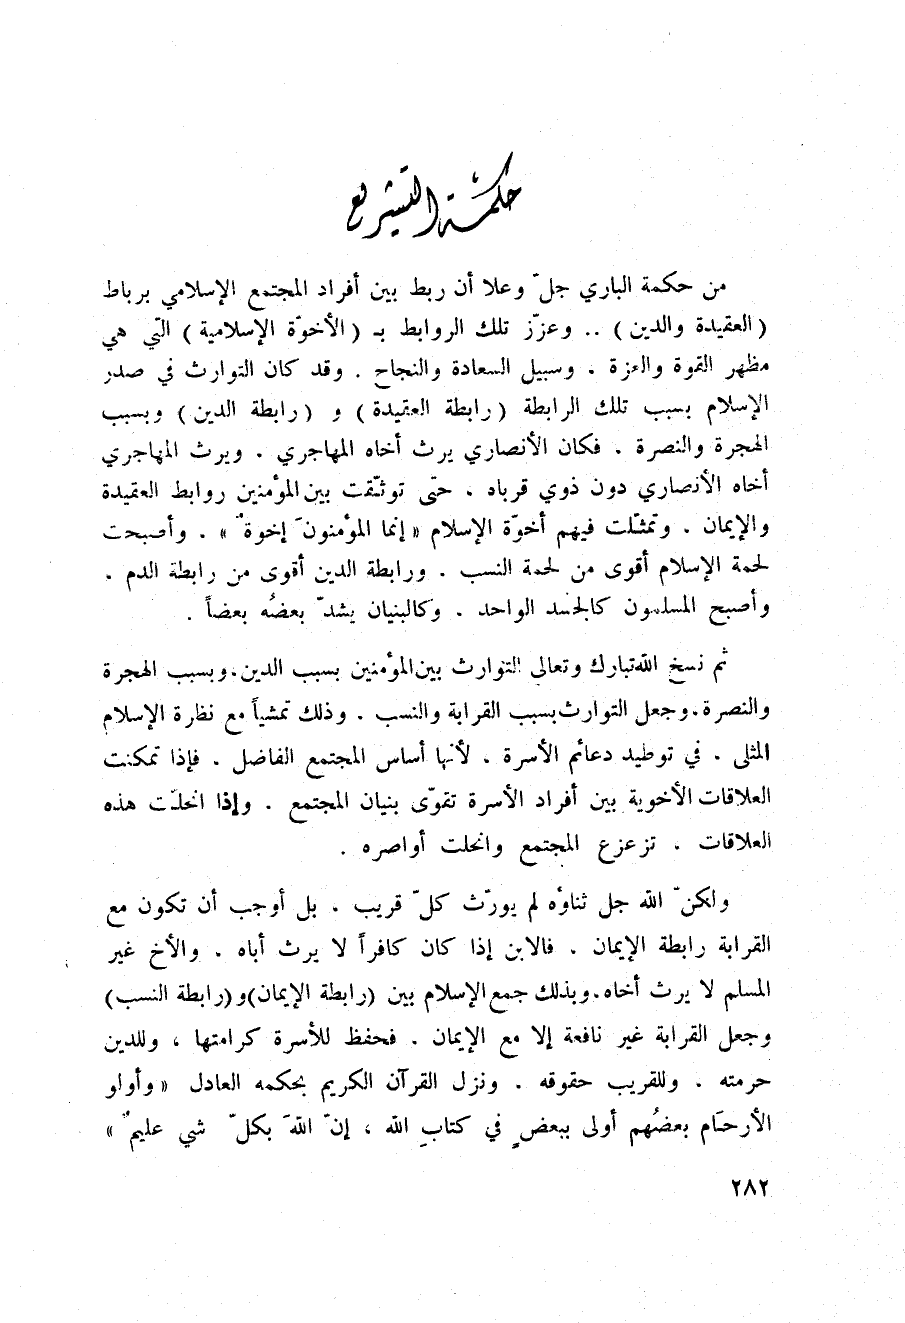 حكمة التشريع
من حكمة الباري جلّ وعلا أن ربط بين أفراد المجتمع الإسلامي برباط
( العقيدة والدين ) .. وعزّز تلك الروابط بـ ( الأخوّة الإسلامية ) التي هي
مظهر القوة والعزة . وسبيل السعادة والنجاح . وقد كان التوارث في صدر
الإسلام بسبب تلك الرابطة ( رابطة العقيدة ) و ( رابطة الدين ) وبسبب
الهجرة والنصرة . فكان الأنصاري يرث أخاه المهاجري . ويرث المهاجري
أخاه الأنصاري دون ذوي قرباه . حتى توثّقت بين المؤمنين روابط العقيدة
والإيمان . وتمثّلت فيهم أخوّة الإسلام « إنما المؤمنونَ إخوةٌ » . وأصبحت
لحمة الإسلام أقوى من لحمة النسب . ورابطة الدين أقوى من رابطة الدم .
وأصبح المسلمون كالجسد الواحد . وكالبنيان يشدّ بعضُه بعضاً .
ثم نسخ الله تبارك وتعالى التوارث بين المؤمنين بسبب الدين . وبسبب الهجرة
والنصرة . وجعل التوارث بسبب القرابة والنسب . وذلك تمشياً مع نظرة الإسلام
المثلى . في توطيد دعائم الأسرة . لأنها أساس المجتمع الفاضل . فإذا تمكنت
العلاقات الأخوية بين أفراد الأسرة تقوّى بنيان المجتمع . وإذا انحلّت هذه
العلاقات . تزعزع المجتمع وانحلت أواصره .
ولكنّ الله جل ثناؤه لم يورّث كلّ قريب . بل أوجب أن تكون مع
القرابة رابطة الإيمان . فالابن إذا كان كافراً لا يرث أباه . والأخ غير
المسلم لا يرث أخاه . وبذلك جمع الإسلام بين (رابطة الإيمان) و (رابطة النسب)
وجعل القرابة غير نافعة إلا مع الإيمان . فحفظ للأسرة كرامتها ، وللدين
حرمته . وللقريب حقوقه . ونزل القرآن الكريم بحكمه العادل « وأولو
الأرحَام بعضُهم أولى ببعضٍ في كتابِ الله ، إنّ اللهَ بكلّ شيء عليمٌ »
٢٨٢